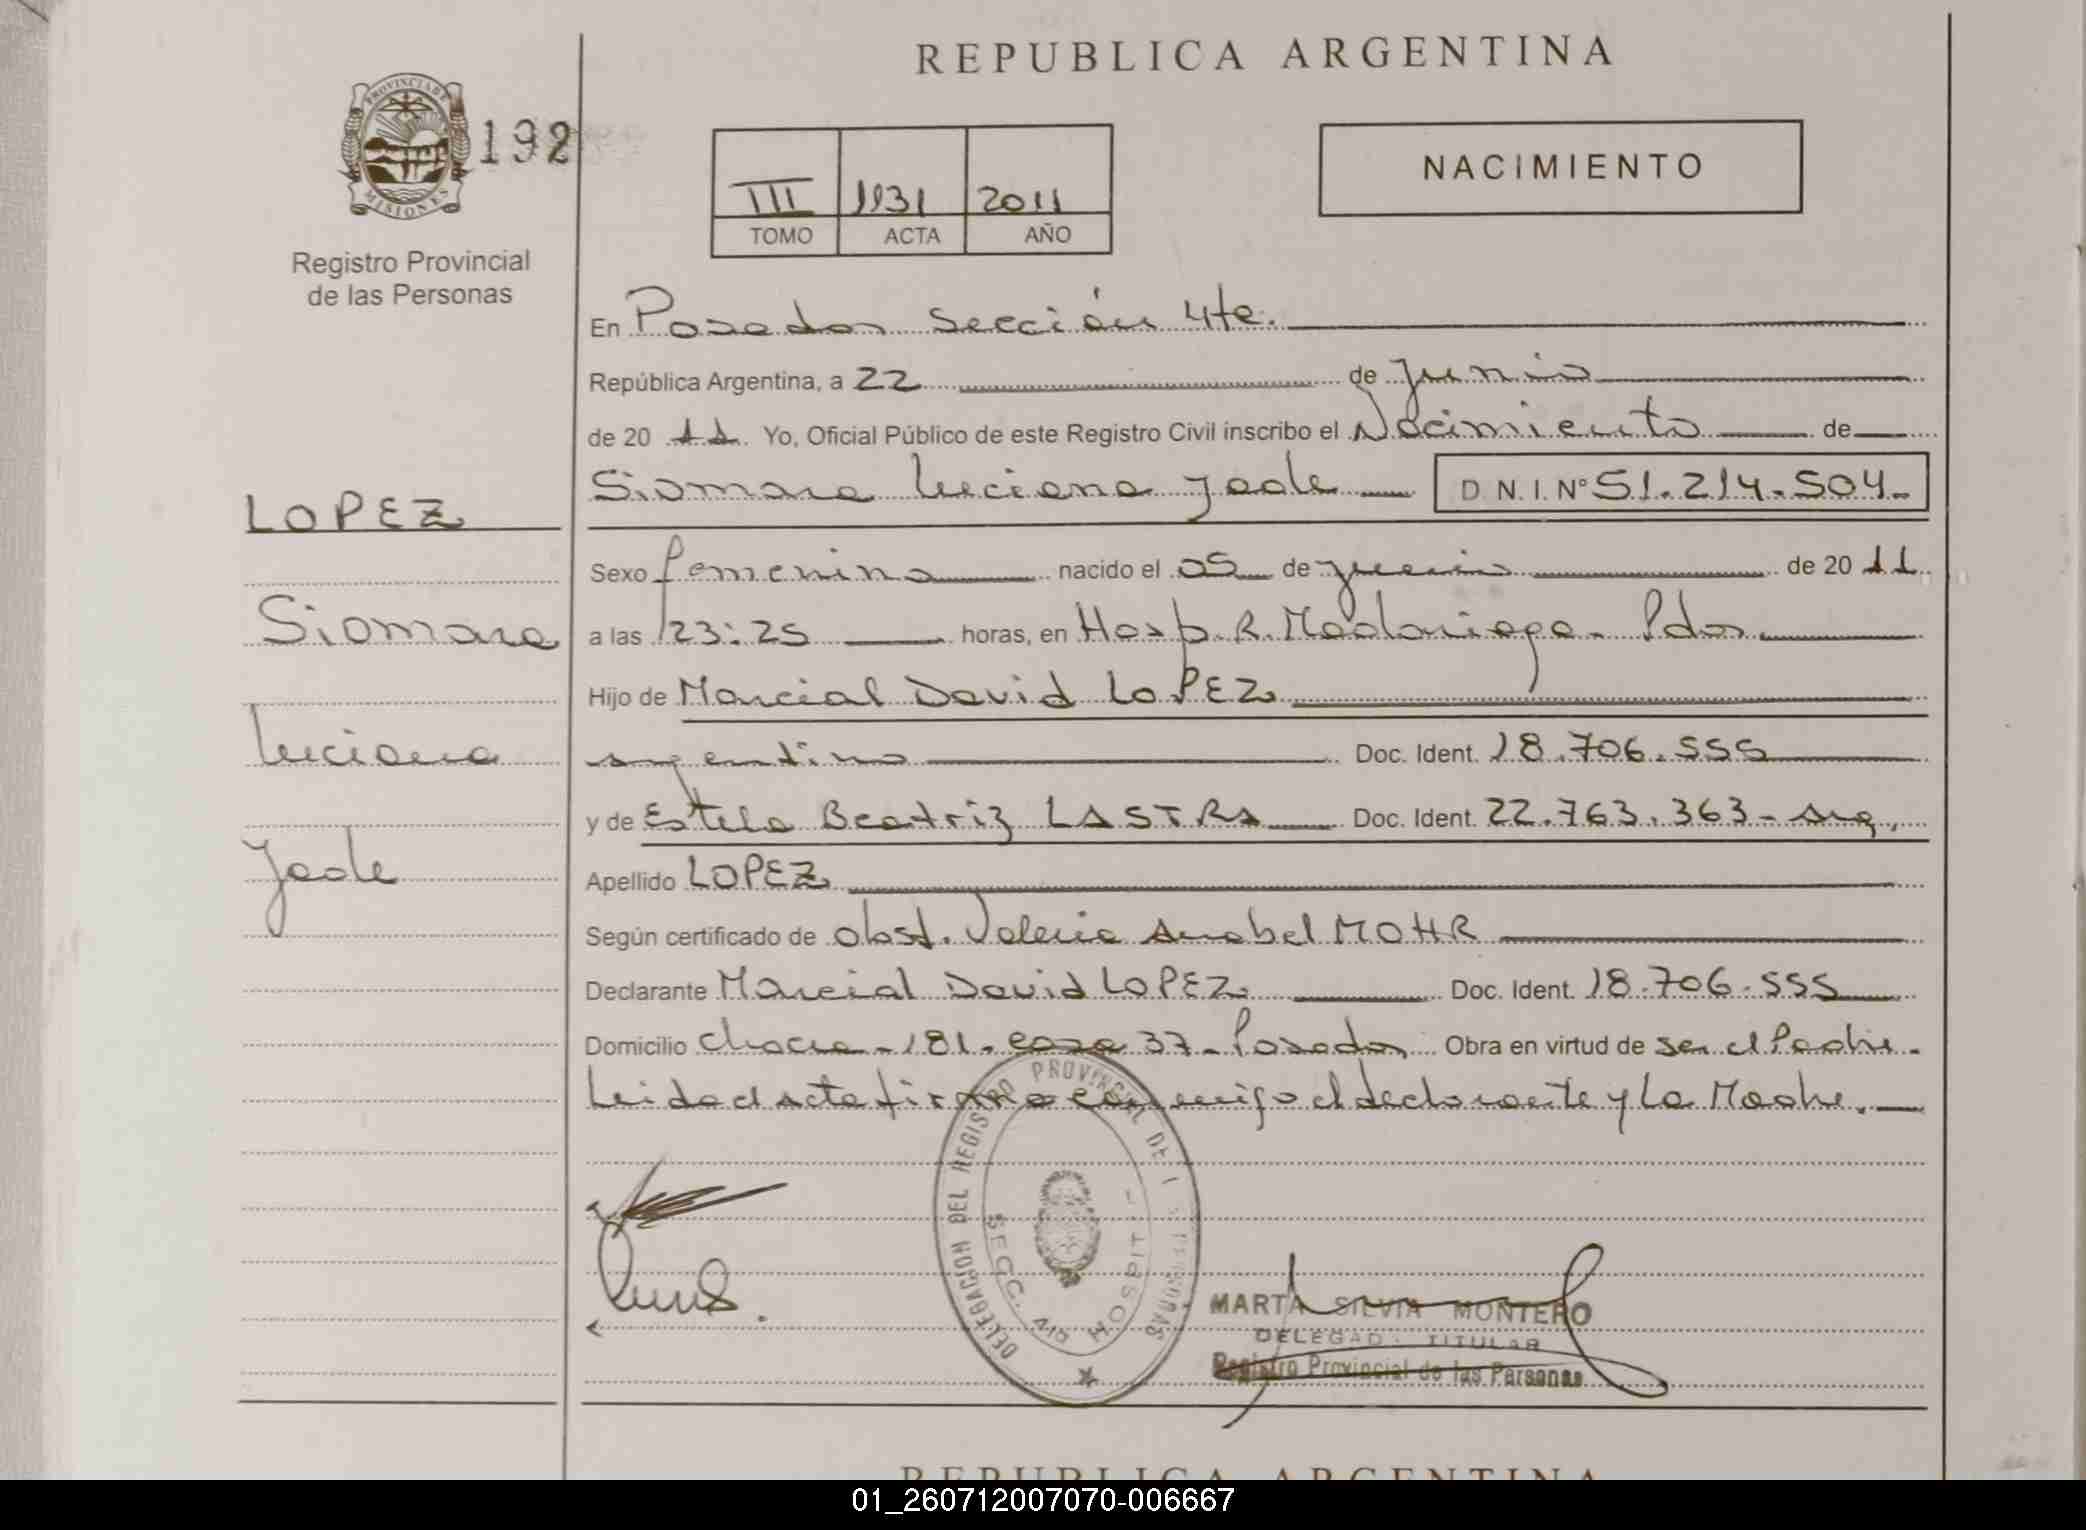 REPUBLICA ARGENTINA
PROVINCIA DE MISIONES
192
Registro Provincial
de las Personas
III 1131 2011
TOMO ACTA AÑO
NACIMIENTO
En Posadas Sección 4ta.
República Argentina, a 22 de junio
de 20 11 Yo, Oficial Público de este Registro Civil inscribo el Nacimiento de
Siomara Luciana Jade D.N.I. Nº 51.214.504.
LOPEZ
Siomara
Luciana
Jade
Sexo femenino nacido el 05 de junio de 20 11
a las 23:25 horas, en Hosp. R. Madariaga - Pdas
Hijo de Marcial David LOPEZ
argentino Doc. Ident. 18.706.555
y de Estela Beatriz LASTRA Doc. Ident. 22.763.363 - arg.
Apellido LOPEZ
Según certificado de obst. Valeria Anabel MOHR
Declarante Marcial David LOPEZ Doc. Ident. 18.706.555
Domicilio chacra - 181 - casa 37 - Posadas Obra en virtud de ser el Padre -
Leida el acta firma conmigo el declarante y La Madre.
DELEGACION DEL REGISTRO PROVINCIAL DE LAS PERSONAS
SECC. 4ta HOSPITAL
MARTA SILVIA MONTERO
DELEGADA TITULAR
Registro Provincial de las Personas
REPUBLICA ARGENTINA
01_260712007070-006667